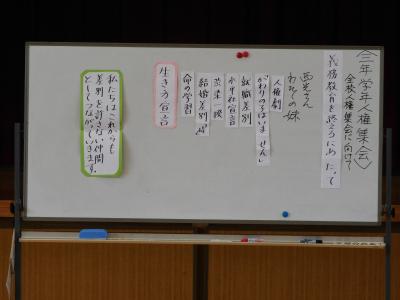 〈三年学年人権集会〉
全校人権集会に向けて
義務教育を終えるにあたって
西光さん
わたしの妹
人権劇
「かわりの子はいません」
就職差別
水平社宣言
渋染一揆
結婚差別
命の学習
生き方宣言
私たちはこれからも
差別を許さない仲間
としてつながっていきます。